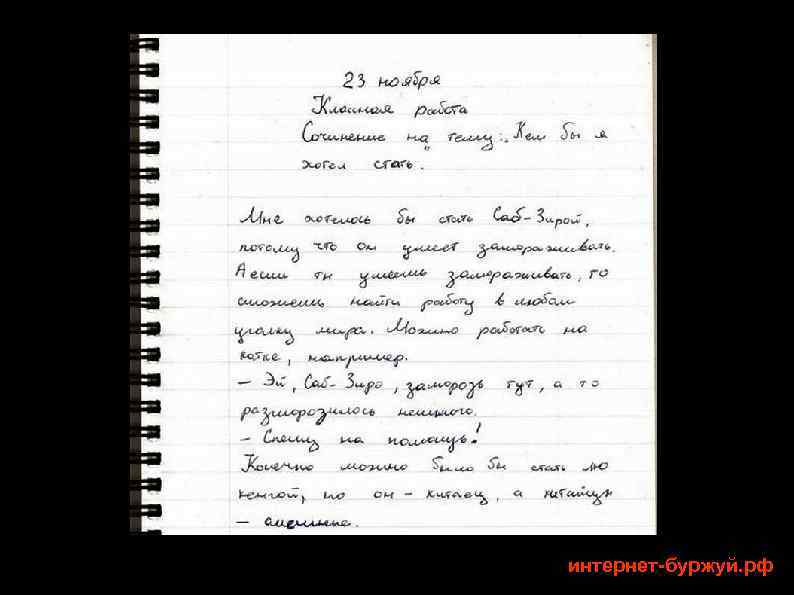 23 ноября
Классная работа
Сочинение на тему: „Кем бы я
хотел стать".
Мне хотелось бы стать Саб-Зирой,
потому что он умеет замораживать.
А если ты умеешь замораживать, то
сможешь найти работу в любом
уголку мира. Можно работать на
катке, например.
– Эй, Саб-Зиро, заморозь тут, а то
разморозилось немного.
– Спешу на помощь!
Конечно можно было бы стать Лю
кенгой, но он – китаец, а китайцы
–
интернет-буржуй.рф